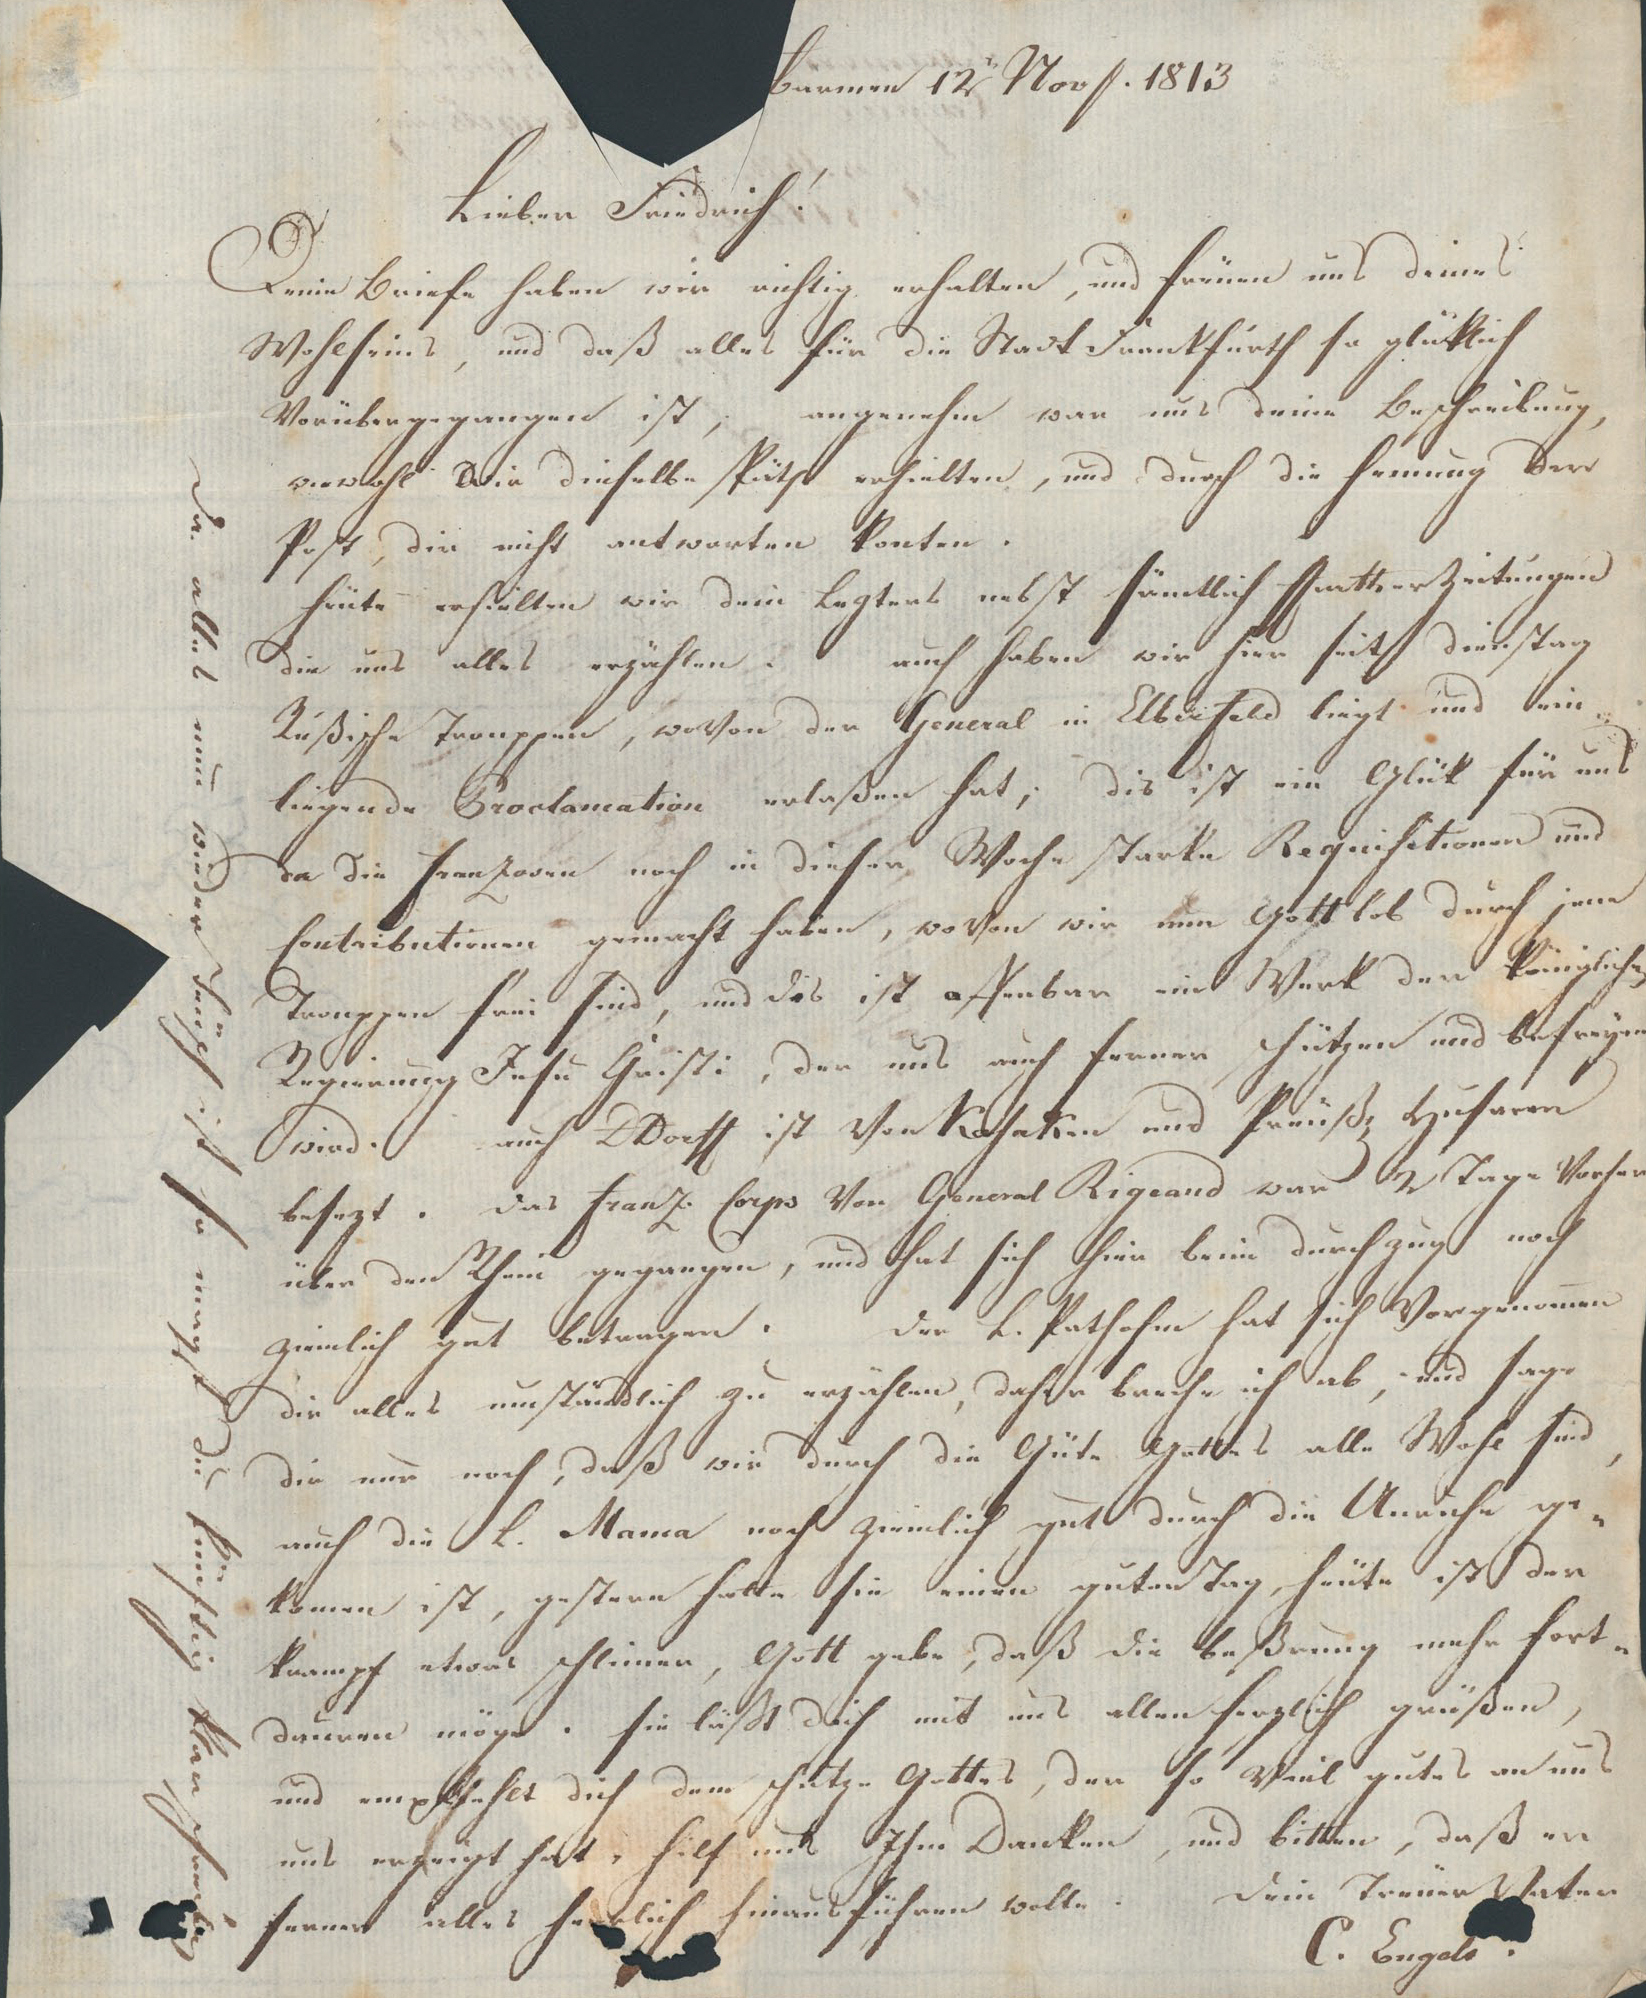 Barmen 12r Novb. 1813
Lieber Friedrich!
Deine Briefe haben wir richtig erhalten, und freüen uns deines
Wohlseins, und daß alles für die Stadt Frankfurth so glüklich
Vorübergegangen ist; angenehm war uns deine Beschreibung,
wiewohl Wir dieselbe späth erhielten, und durch die hemung der
Post, dir nicht antworten konten.
heüte erhielten wir dein Lezters nebst sämtlich Zeitungen
die uns alles erzählen. auch haben wir hier seit dienstag
Rußische Trouppen, woVon der General in Elberfeld liegt und ein
liegende Proclamation erlaßen hat; dis ist ein Glük für uns
da die franzosen noch in dieser Woche starke Requisitionen und
Contributionen gemacht haben, woVon wir nun Gottlob durch jene
Trouppen frei sind, und dis ist offenbar ein Werk der königlichen
Regierung Jesu Christi, der uns auch ferner schützen und befreyen
wird. auch DDorff ist Von Kosaken und Preüß. Husaren
besezt. das franz. Corps Von General Rigeaud war 2 Tage Vorher
über den Rhein gegangen, und hat sich hier beim durchzug noch
ziemlich gut betragen. der L. Pathohm hat sich Vorgenomen
dir alles umständlich zu erzählen, daher breche ich ab, und sage
dir nur noch, daß wir durch die Güte Gottes alle Wohl sind,
auch die L. Mama noch ziemlich gut durch die Unruhe ge-
komen ist, gestern hatte sie einen guten Tag, heüte ist der
krampf etwas schlimer, Gott gebe, daß die beßrung mehr fort-
dauren möge. sie läßt dich mit uns allen herzlich grüßen,
und empfiehlet dich dem schutze Gottes, der so Viel gutes an uns
uns erzeigt hat, hilf uns Ihm Danken, und bitten, daß er
ferner alles herrlich hinausführen wolle. dein Treüer Vater
C. Engels.
Da alles nun wieder sicher ist so magst du künftig klar schreiben